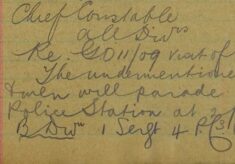 Chief Constable
all Divns
Re. GO 11/09 visit of
The undermentione
& men will parade
Police Station at
B Divn 1 Sergt 4 P.Cs